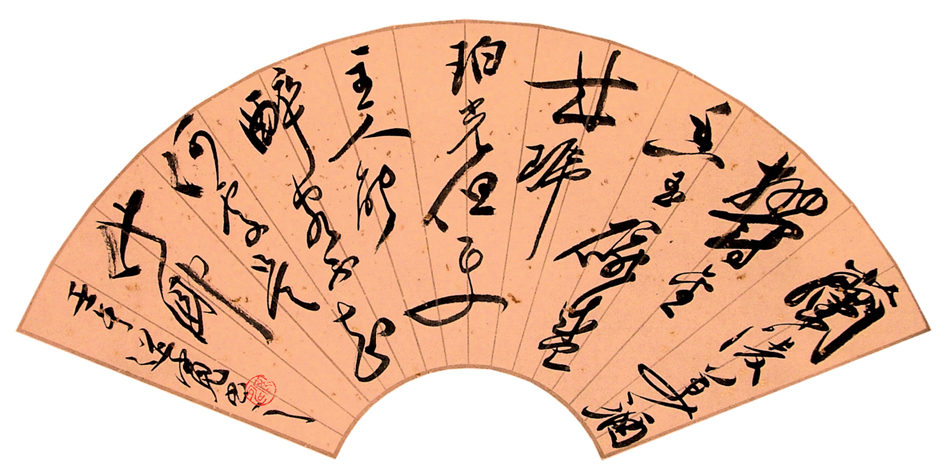 蘭陵美酒
鬱金
香玉碗盛
来琥
珀光但使
主人能
醉客不知
何处是
他鄉